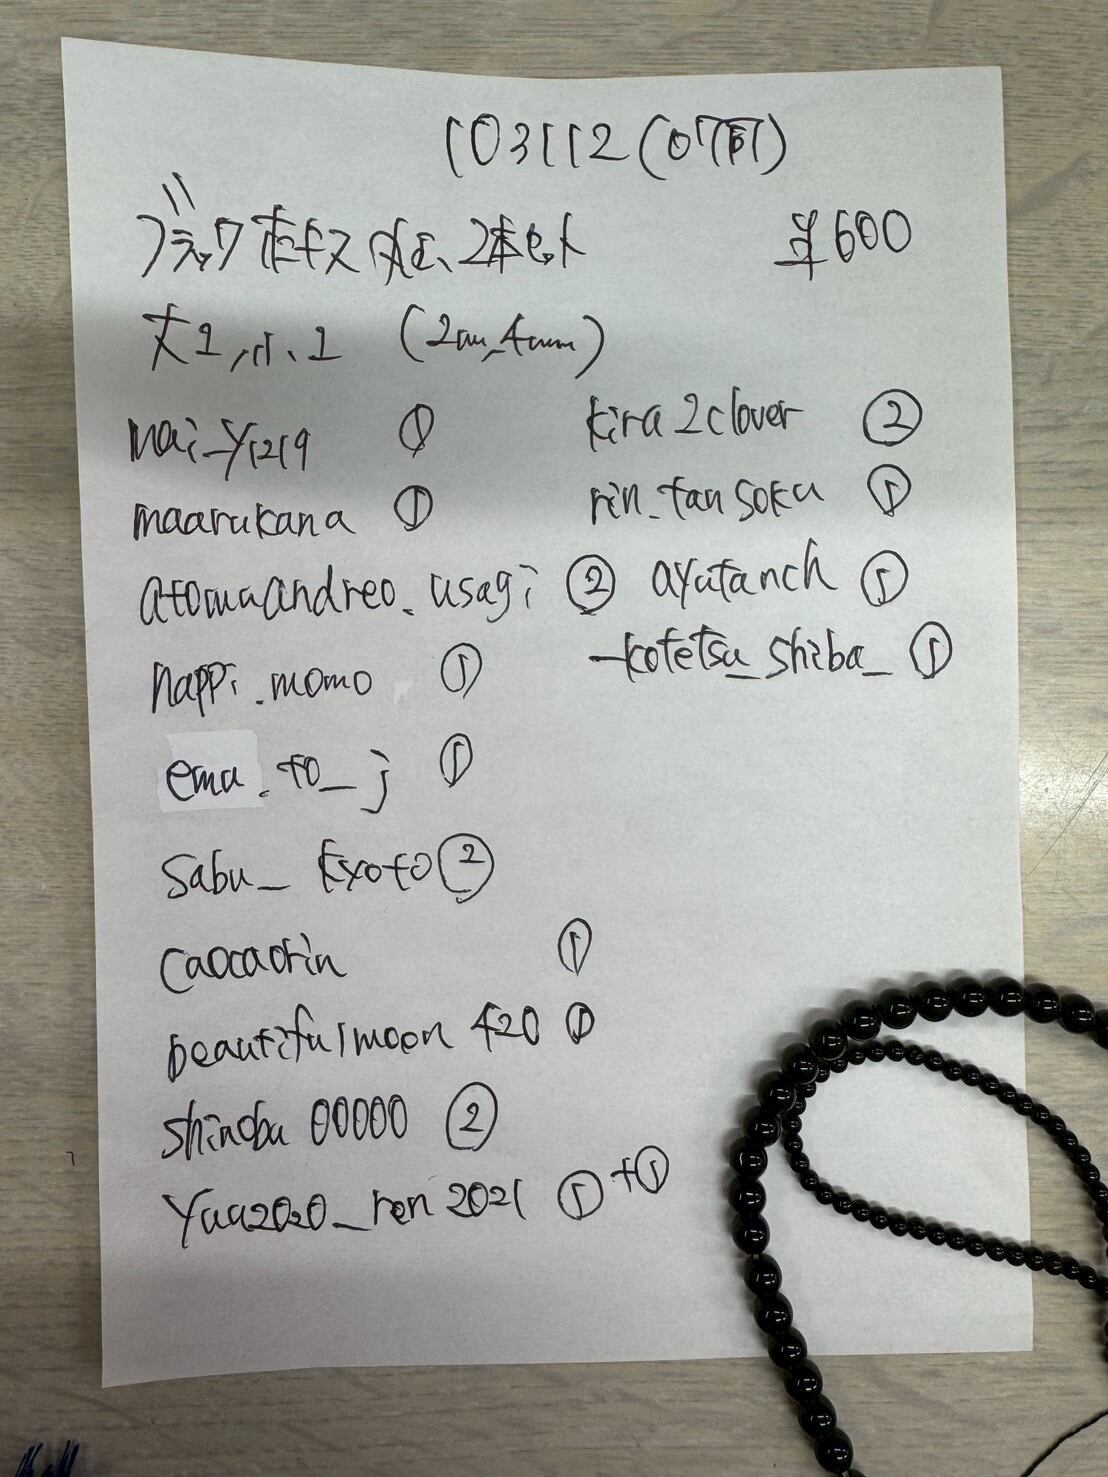 103112 (07百)
ブラックオニキス 丸玉、2本セット ¥600
大1, 小、1 (2mm、4mm)
mai_y1219 ①
maarukana ①
atomuandreo.usagi ②
happi.momo ①
emu.to_j ①
sabu_kyoto ②
caocaorin ①
beautifulmoon420 ①
shinobu00000 ②
yuu2020_ren2021 ①+①
kira2clover ②
rin_tansoku ①
ayutanch ①
_kotetsu_shiba_ ①